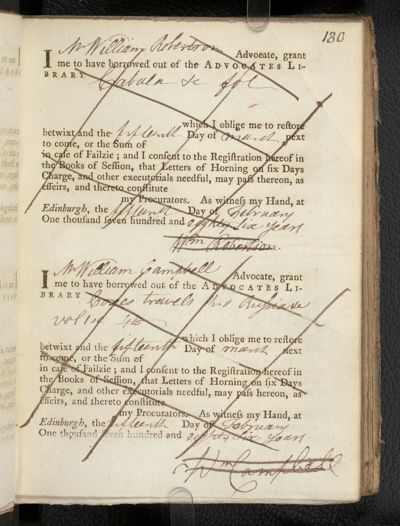 130
I Mr William Robertson Advocate, grant
me to have borrowed out of the ADVOCATES LI-
BRARY Cabala &c fol
which I oblige me to restore
betwixt and the fifteenth Day of March next
to come, or the Sum of
in case of Failzie; and I consent to the Registration hereof in
the Books of Session, that Letters of Horning on six Days
Charge, and other executorials needful, may pass thereon, as
effeirs, and thereto constitute
my Procurators. As witness my Hand, at
Edinburgh, the fifteenth Day of February
One thousand seven hundred and eighty six years
Wm Robertson.
I Mr William Campbell Advocate, grant
me to have borrowed out of the ADVOCATES LI-
BRARY Coxes travels Russia &c
vol 1st 4to
which I oblige me to restore
betwixt and the fifteenth Day of March next
to come, or the Sum of
in case of Failzie; and I consent to the Registration hereof in
the Books of Session, that Letters of Horning on six Days
Charge, and other executorials needful, may pass hereon, as
effeirs, and thereto constitute
my Procurators. As witness my Hand, at
Edinburgh, the fifteenth Day of February
One thousand seven hundred and eighty six years
Wm Campbell